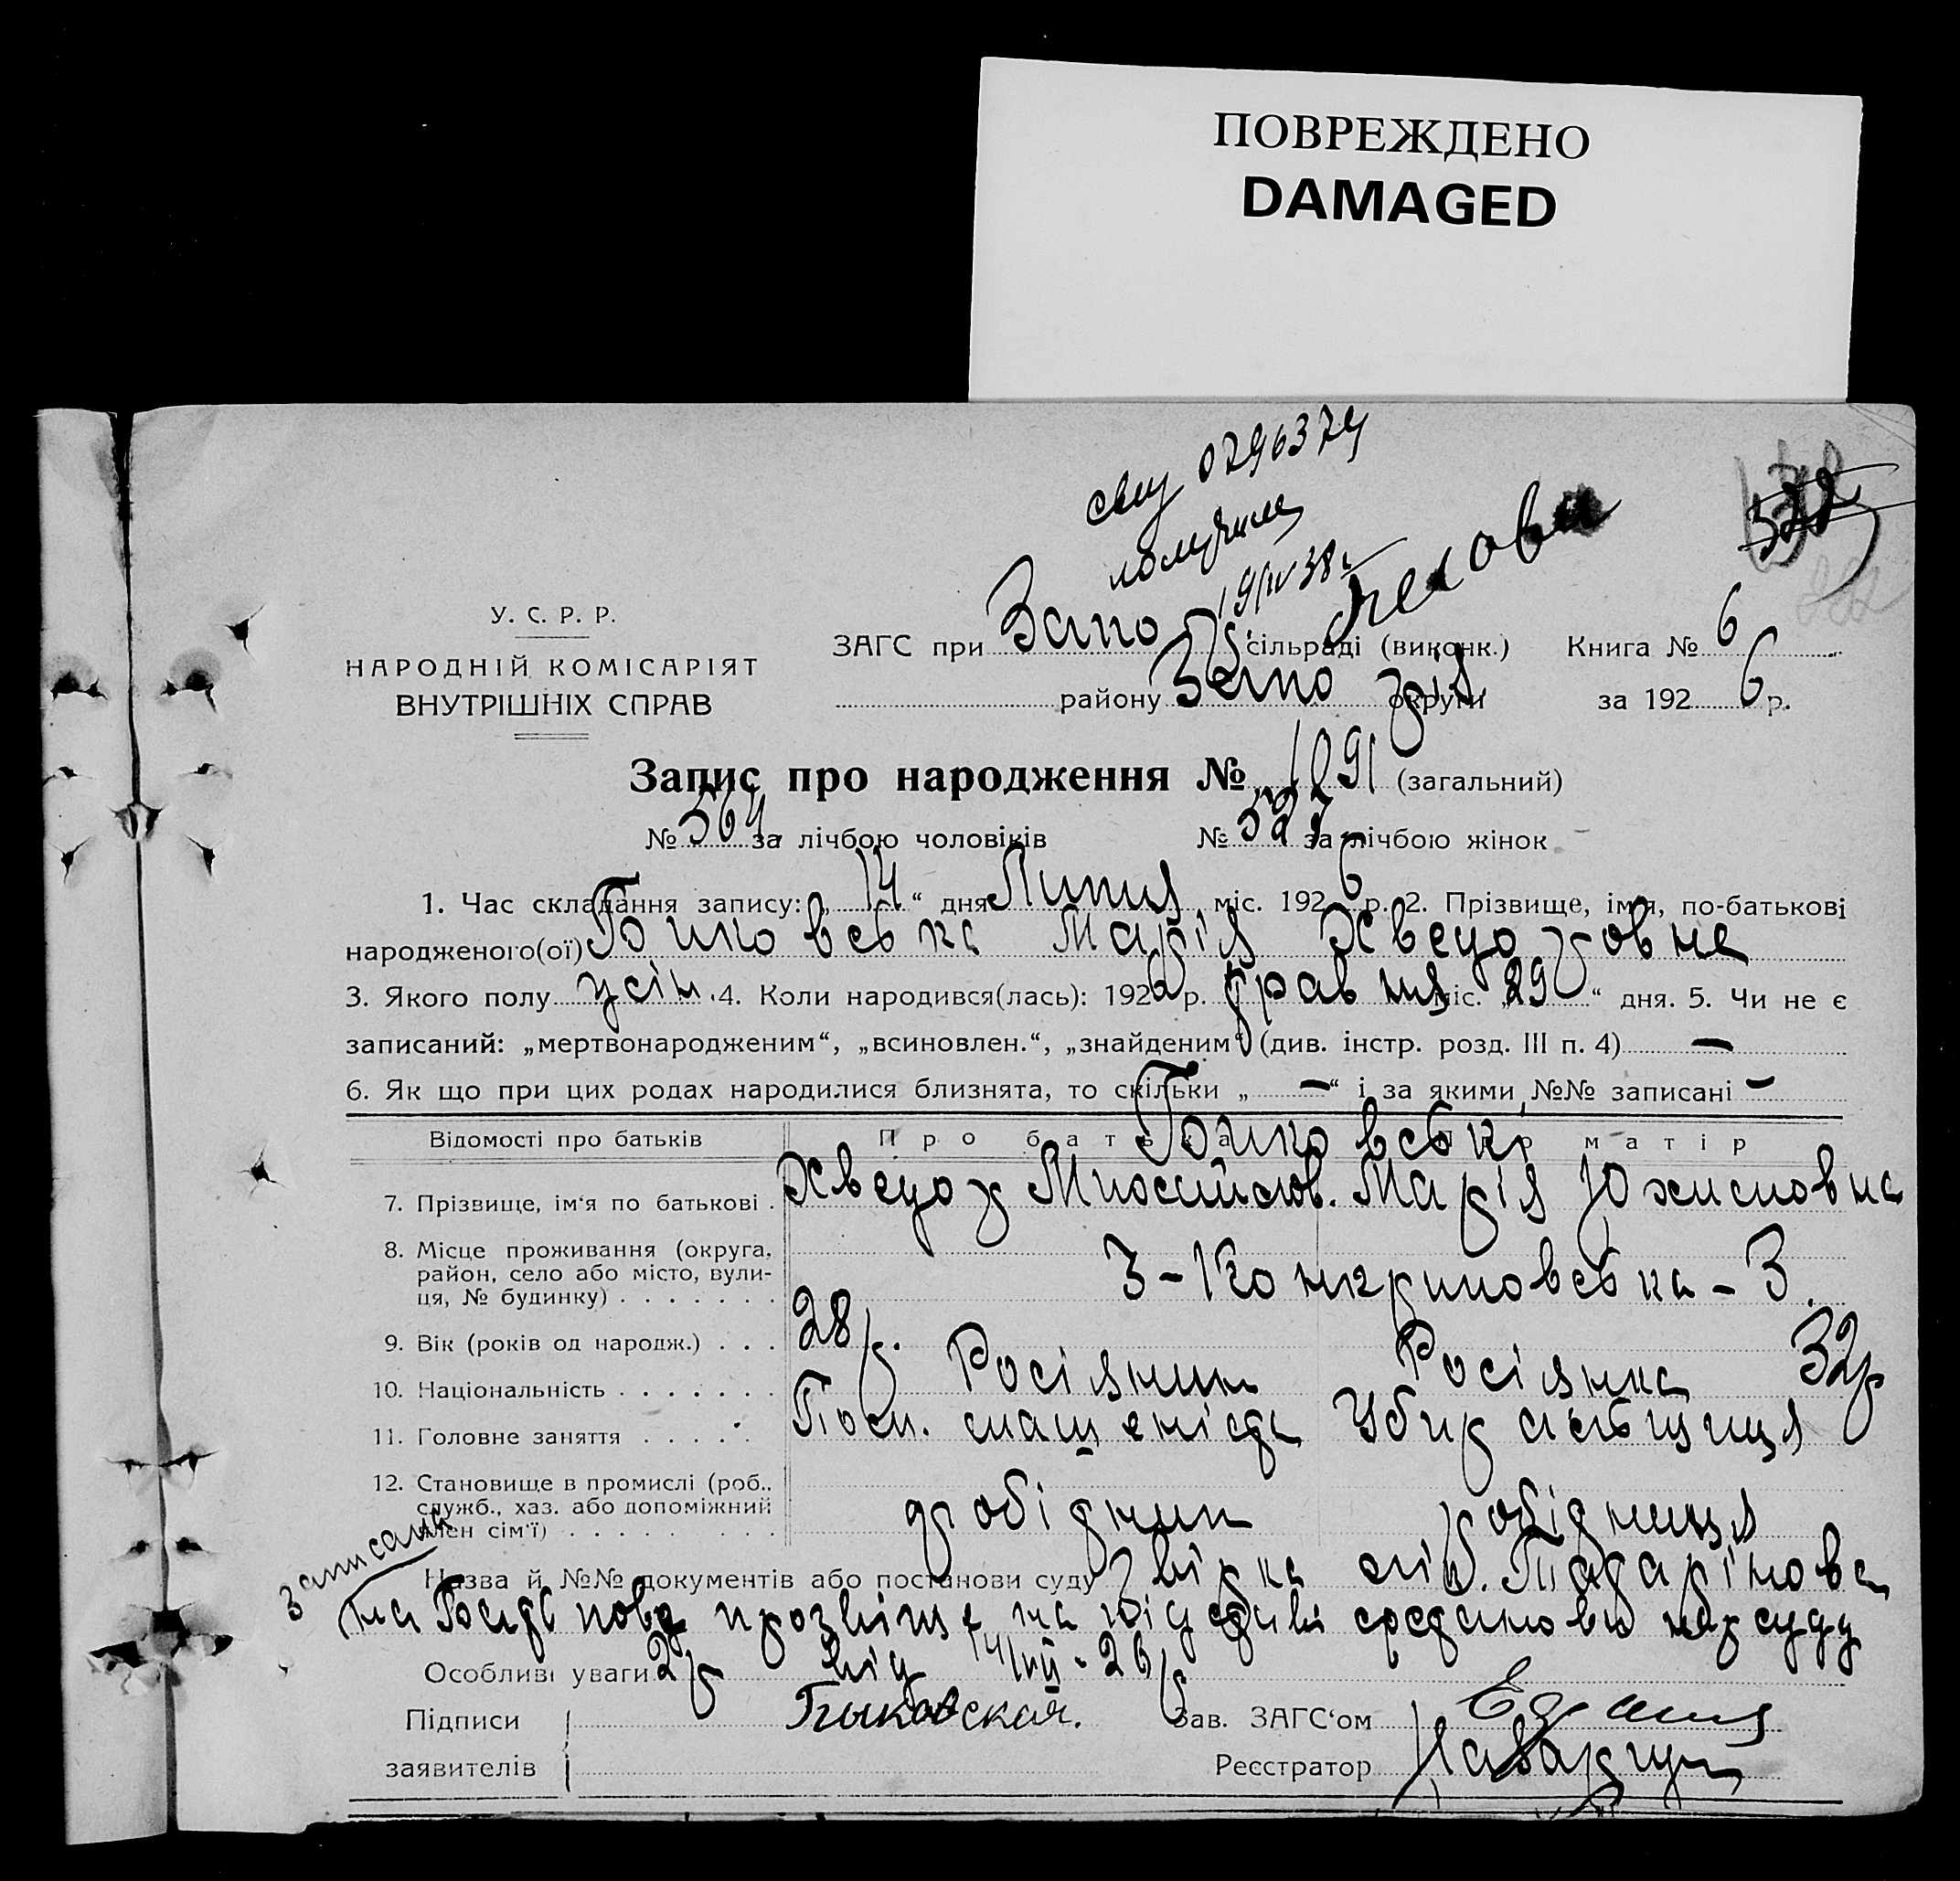 ПОВРЕЖДЕНО
DAMAGED
0796374
19/IV 38 г.
У. С. Р. Р.
НАРОДНІЙ КОМІСАРІЯТ
ВНУТРІШНІХ СПРАВ
ЗАГС при Запо сільраді (виконк.) Книга № 6
району Запо округи за 1926 р.
Запис про народження № 1091 (загальний)
№ 564 за лічбою чоловіків № 527 за лічбою жінок
1. Час складання запису: „ 14 “ дня Липця міс. 1926 р. 2. Прізвище, ім'я, по-батькові
народженого(ої) Биковська Марія Хведоровна
3. Якого полу жін. 4. Коли народився(лась): 1926 р. Травня міс. „ 29 “ дня. 5. Чи не є
записаний: „мертвонародженим“, „всиновлен.“, „знайденим“ (див. інстр. розд. III п. 4) —
6. Як що при цих родах народилися близнята, то скільки „ — “ і за якими №№ записані —
Відомості про батьків Про батька Про матір
Биковські
7. Прізвище, ім‘я по батькові . Хведор Марія Юхимовна
8. Місце проживання (округа,
район, село або місто, вули-
ця, № будинку) . . . . . . . З -
9. Вік (років од народж.) . . . 28 р. 32 р
10. Національність . . . . . . . Росіянин Росіянка
11. Головне заняття . . . . . Пом. машеніста Убиральщиця
12. Становище в промислі (роб..
служб., хаз. або допоміжний
член сім'ї) . . . . . . . . . робідник робідниця
Назва й №№ документів або постанови суду
записана
на прозвіще на підставі постанови нарсуду
Особливі уваги 2 р від 14/VII - 26 р
Підписи Быковская. Зав. ЗАГС‘ом
заявителів Реєстратор